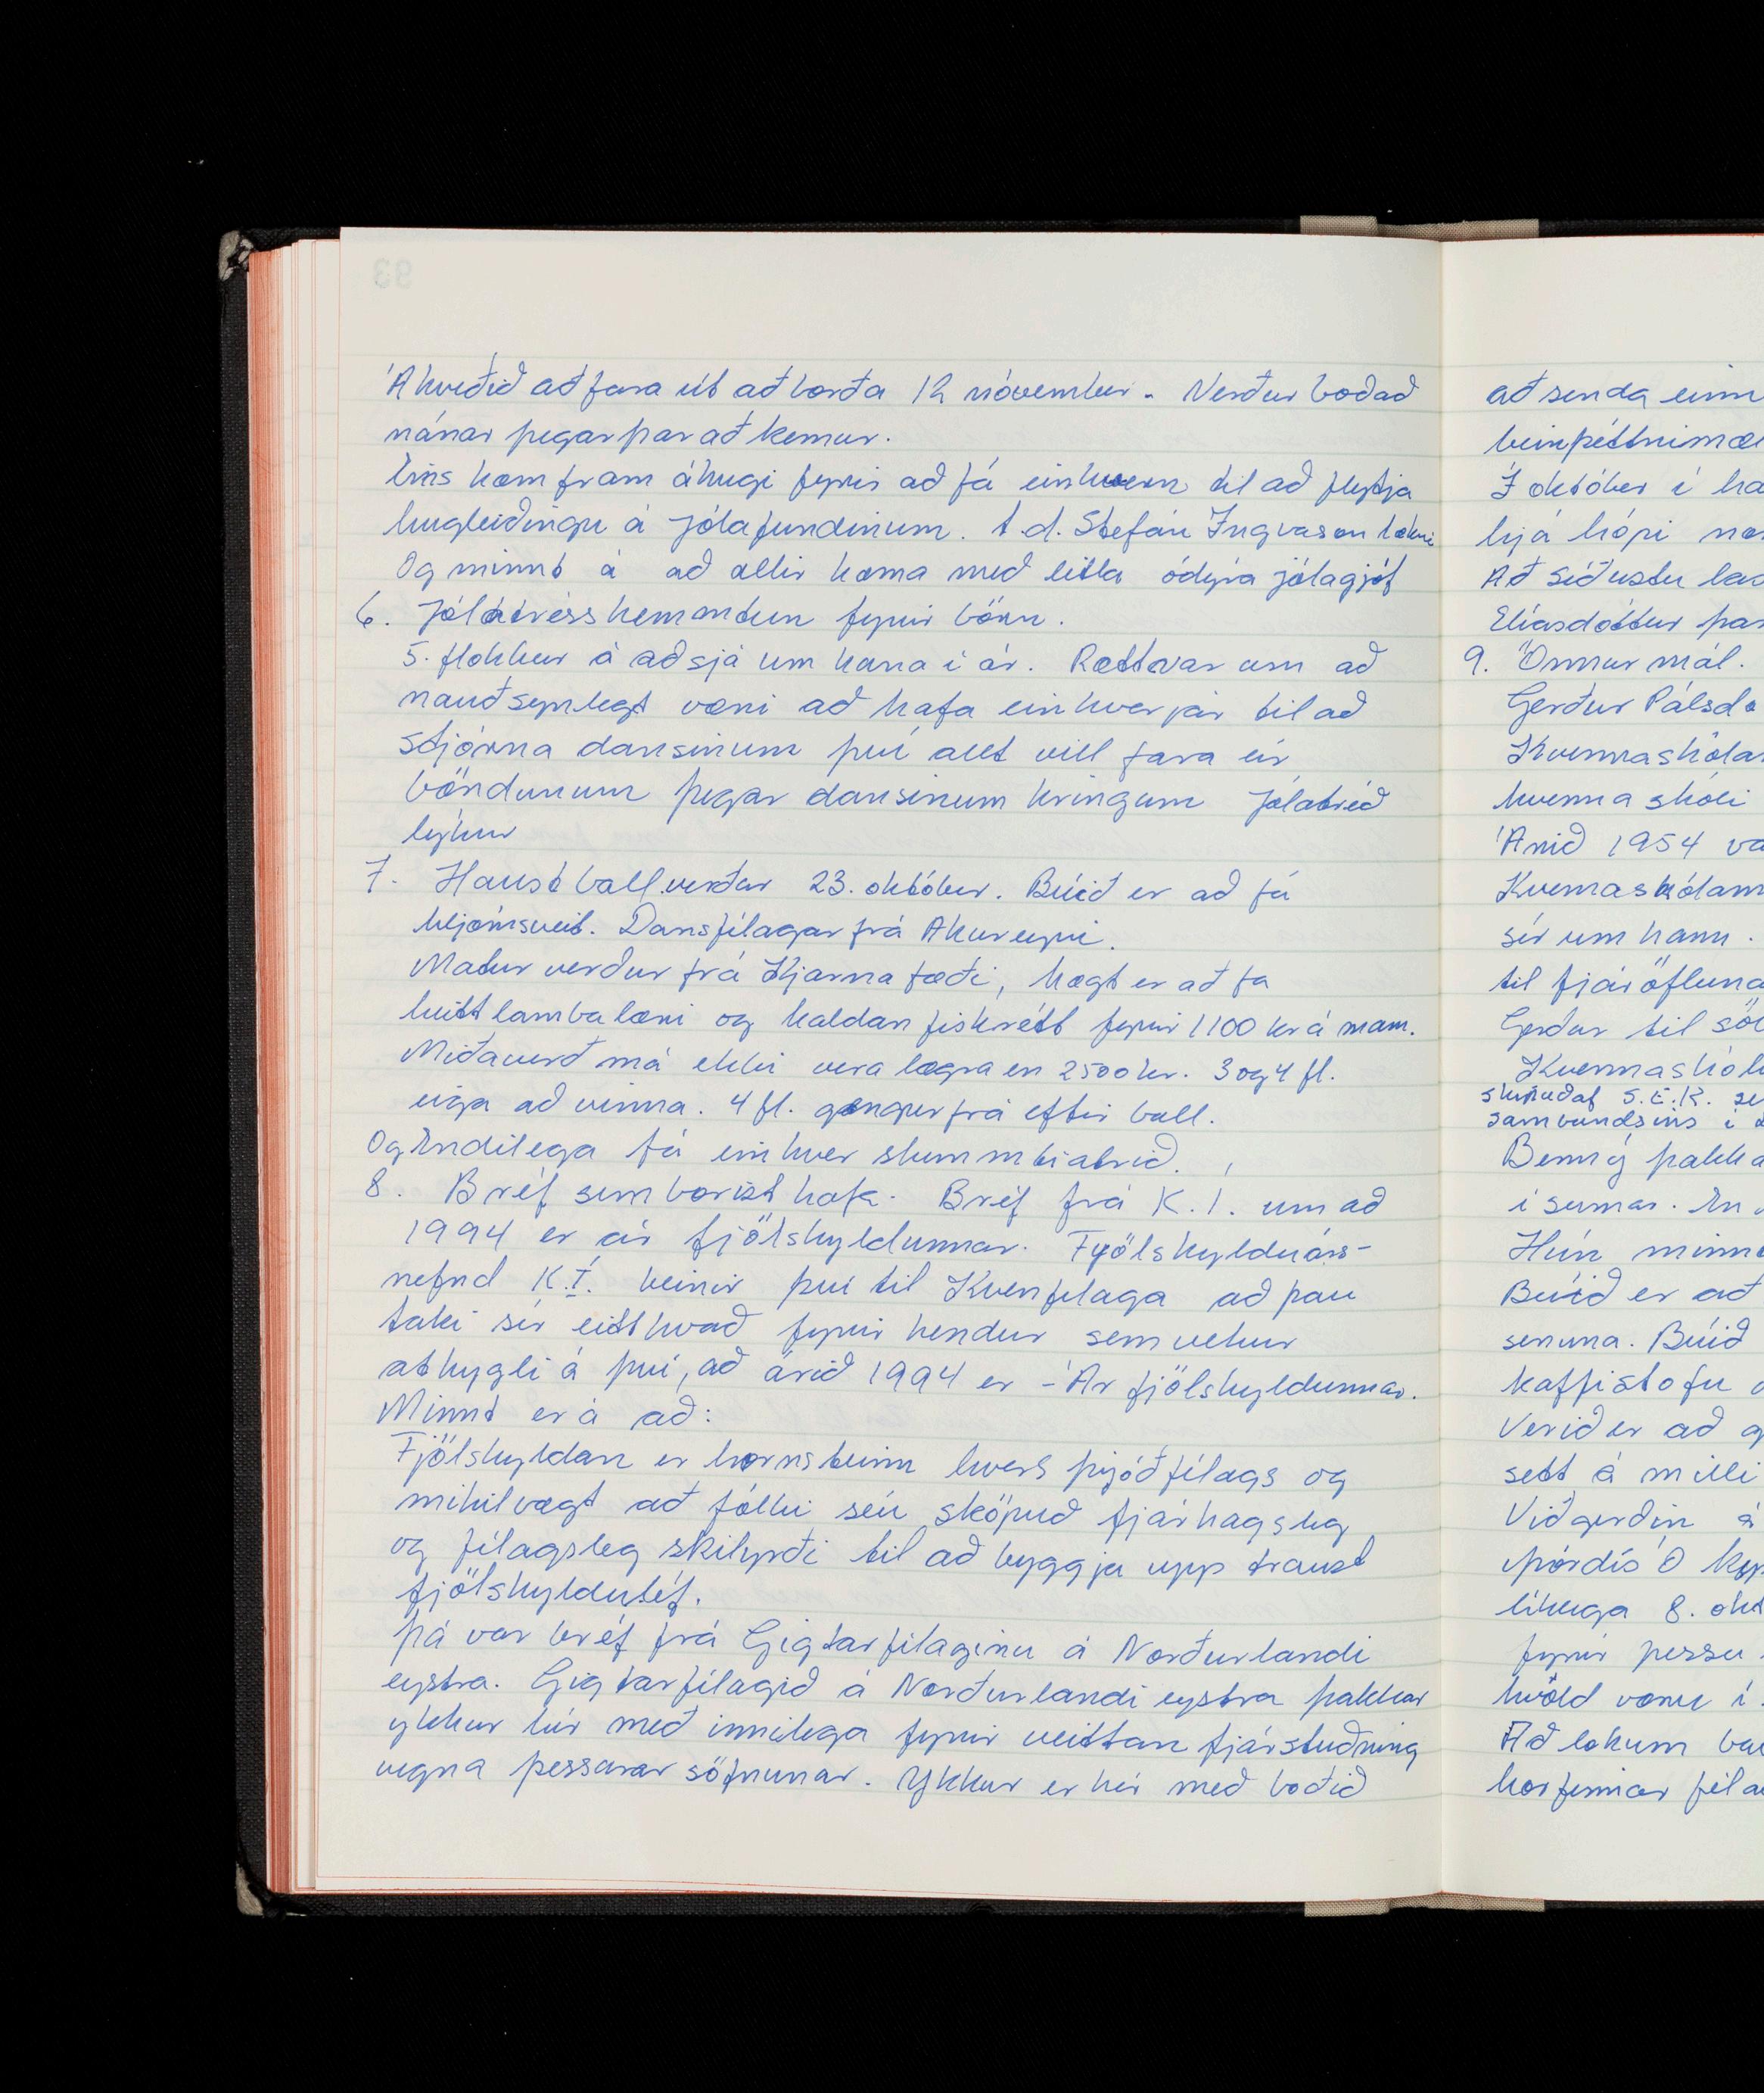 93
Ákveðið að fara út að borða 12 nóvember. Verður boðað
nánar þegar þar að kemur.
Eins kom fram áhugi fyrir að fá einhvern til að flytja
hugleiðingu á Jólafundinum. t.d. Stefán Ingvason lækni
Og minnt á að allir koma með litla ódýra jólagjöf
6. Jólatrésskemmtun fyrir börn.
5. flokkur á að sjá um hana í ár. Rætt var um að
nauðsynlegt væri að hafa einhverjar til að
stjórna dansinum því allt vill fara úr
böndunum þegar dansinum kringum Jólatréð
lýkur
7. Haustball verður 23. október. Búið er að fá
hljómsveit. Dansfélagar frá Akureyri.
Matur verður frá Kjarnafæði, hægt er að fá
heitt lambalæri og kaldan fiskrétt fyrir 1100 kr á mann.
Miðaverð má ekki vera lægra en 2500 kr. 3 og 4 fl.
eiga að vinna. 4 fl. gengur frá eftir ball.
Og Endilega fá einhver skemmtiatrið.
8. Bréf sem borist hafa. Bréf frá K.Í. um að
1994 er ár fjölskyldunnar. Fjölskylduárs-
nefnd K.Í. beinir því til Kvenfélaga að þau
taki sér eitthvað fyrir hendur sem vekur
athygli á því, að árið 1994 er - Ár fjölskyldunnar.
Minnt er á að:
Fjölskyldan er hornsteinn hvers þjóðfélags og
mikilvægt að fólki séu sköpuð fjárhagsleg
og félagsleg skilyrði til að byggja upp traust
fjölskyldulíf.
Þá var bréf frá Gigtarfélaginu á Norðurlandi
eystra. Gigtarfélagið á Norðurlandi eystra þakkar
ykkur hér með innilega fyrir veittan fjárstuðning
vegna þessarar söfnunar. Ykkur er hér með boðið
að senda einn
beinþéttnimæl
Í október í ha
hjá hópi
Að síðustu las
Elíasdóttur þar
9. Önnur mál.
Gerður Pálsdó
Kvennaskólan
kvennaskóli
Árið 1954 va
Kvennaskólann
sér um hann.
til fjáröfluna
Gerður til söl
Kvennaskól
S.E.K.
sambandsins í
Benný þakka
í sumar. En
Hún minnt
Búið er að
senuna. Búið
kaffistofu
Verið er að
sett á milli
Viðgerðin á
Þórdís Ó
líklega 8. okt
fyrir þessu
kvöld í
Að lokum
horfinnar féla